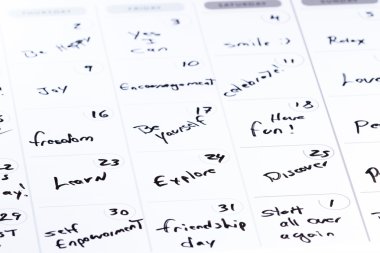 THURSDAY FRIDAY SATURDAY SUNDAY
2 3 4 5
Be Happy
Yes
I
can
smile :)
Relax
9 10 11
Joy
Encouragement
celebrate!
Love
16 17 18
freedom
Be
yourself
Have
fun!
23 24 25
Learn
Explore
Discover
29 30 31 1
self
Empowerment
friendship
day
start
all over
again